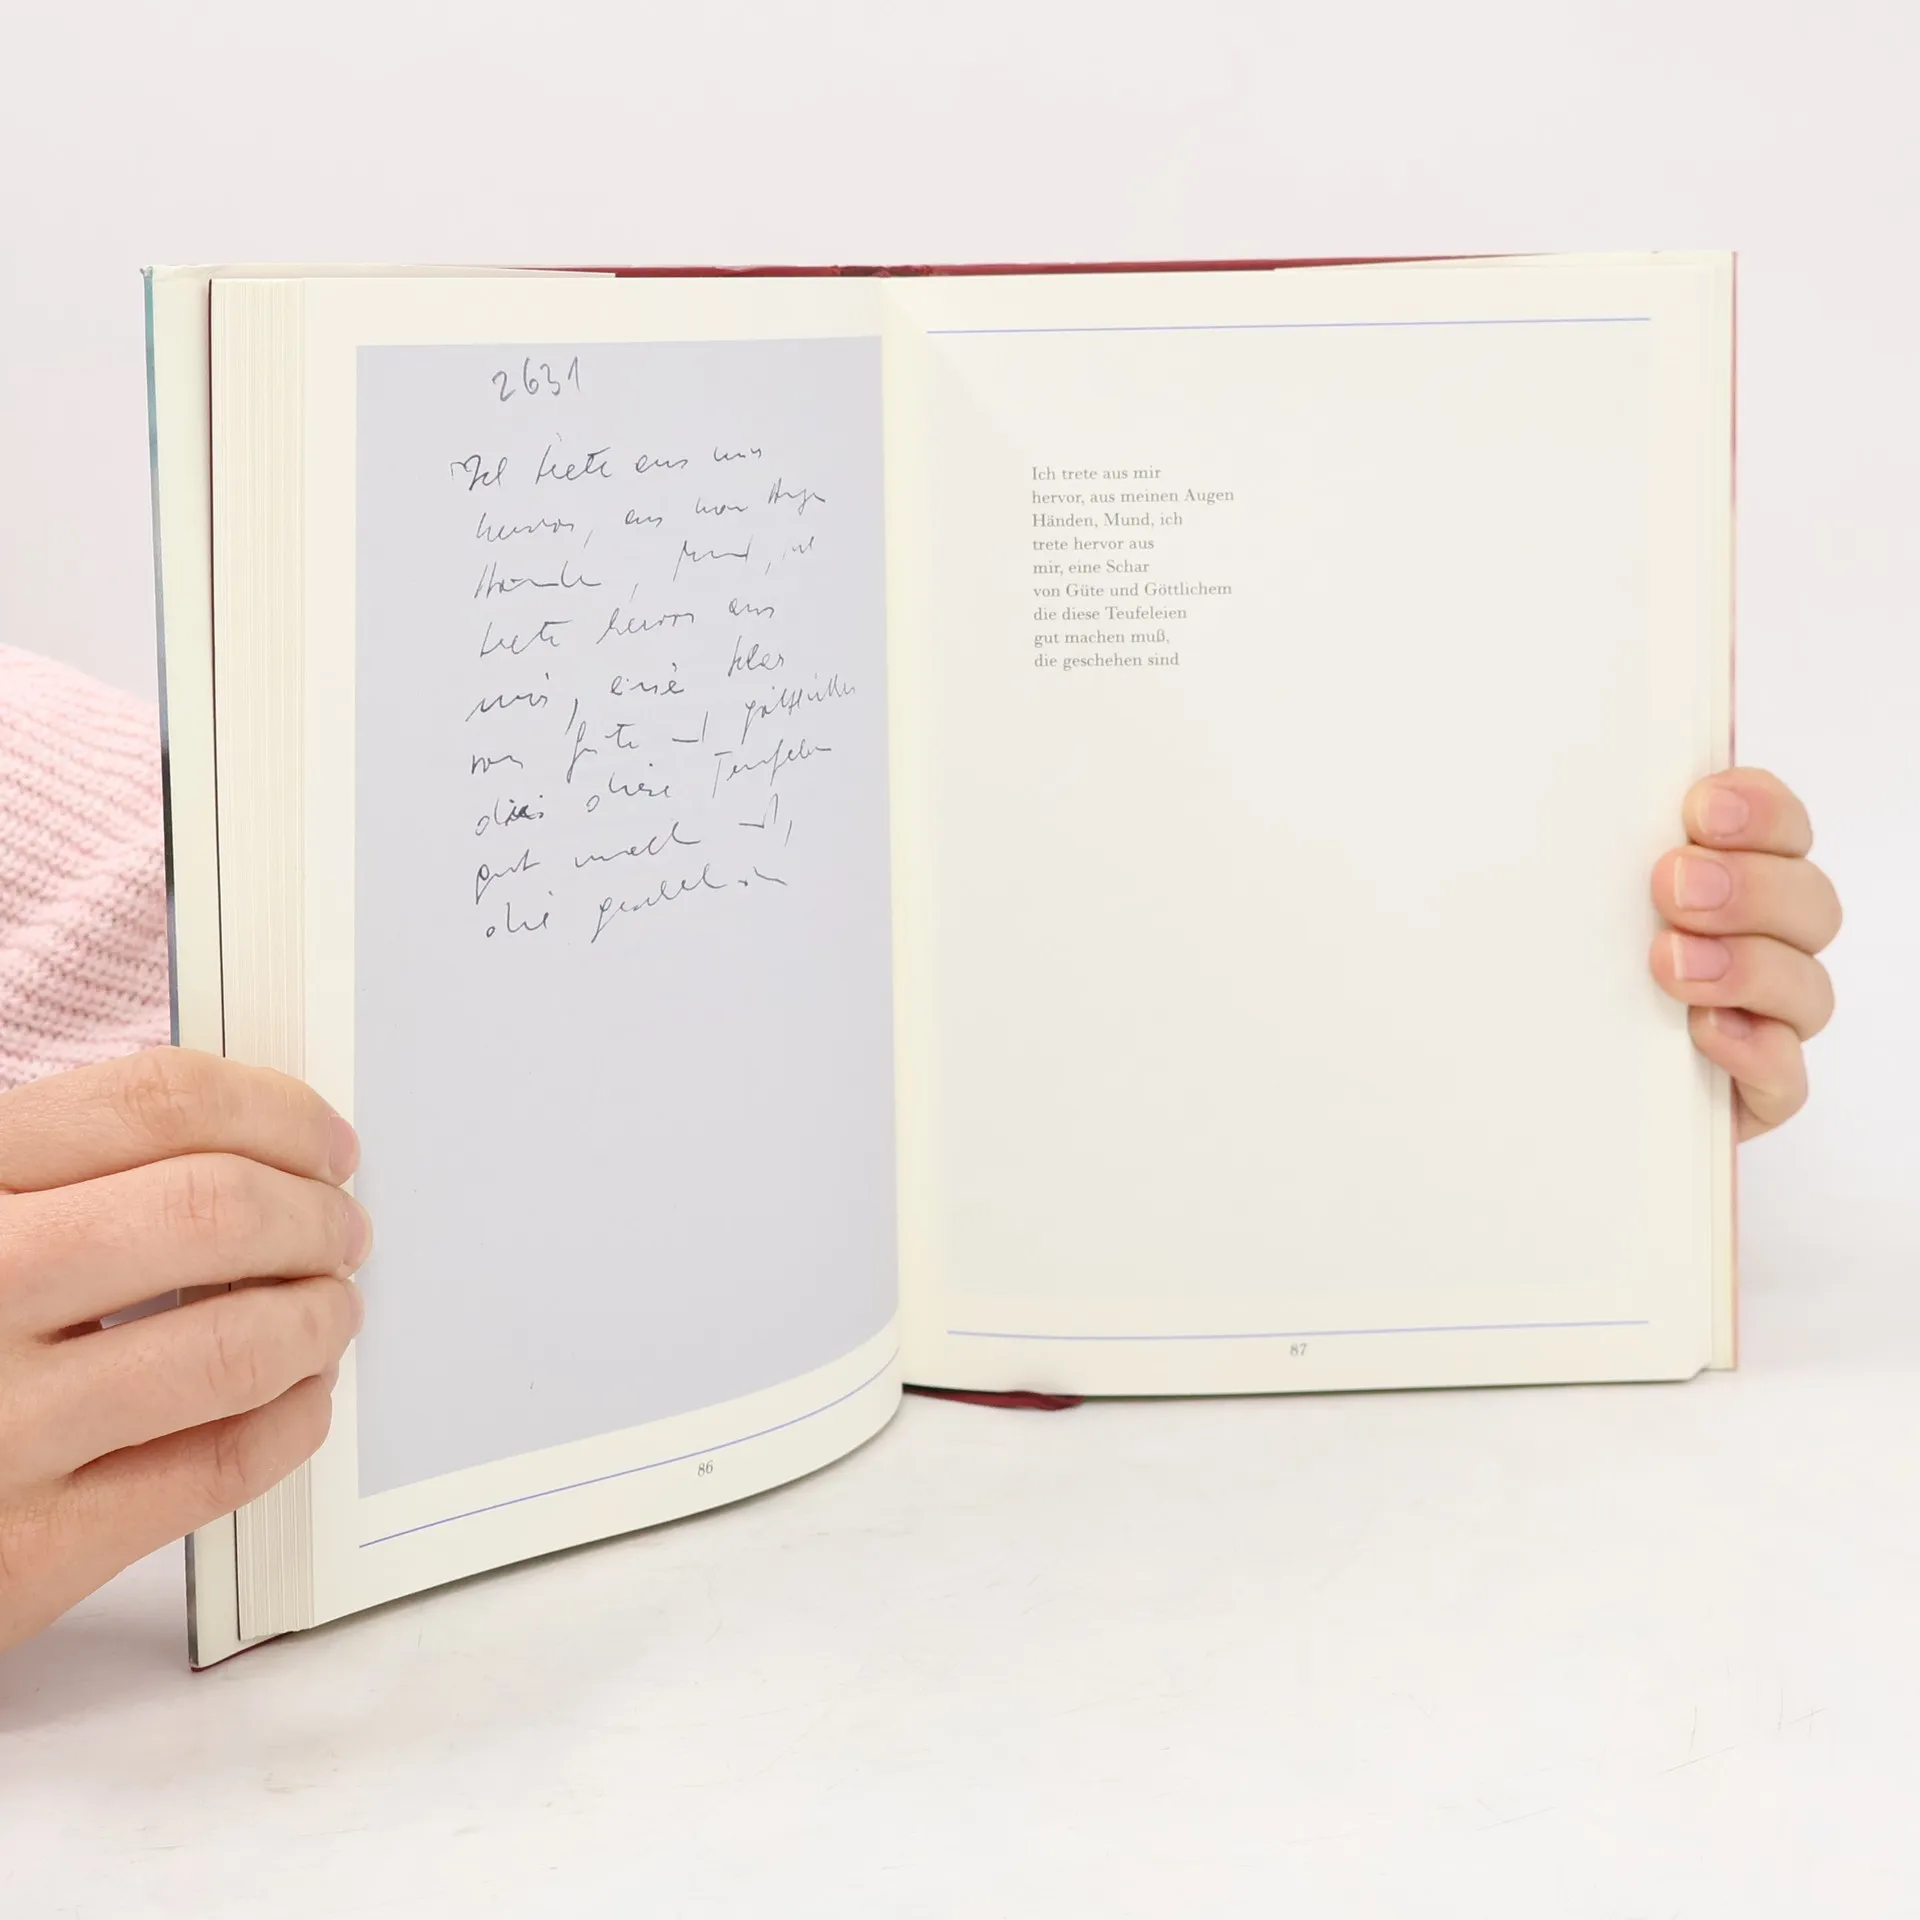 2631
Ich trete aus mir
hervor, aus meinen Augen
Hände, Mund, ich
trete hervor aus
mir, eine
von Güte und
die diese Teufeleien
gut machen
die geschehen sind
86
Ich trete aus mir
hervor, aus meinen Augen
Händen, Mund, ich
trete hervor aus
mir, eine Schar
von Güte und Göttlichem
die diese Teufeleien
gut machen muß,
die geschehen sind
87